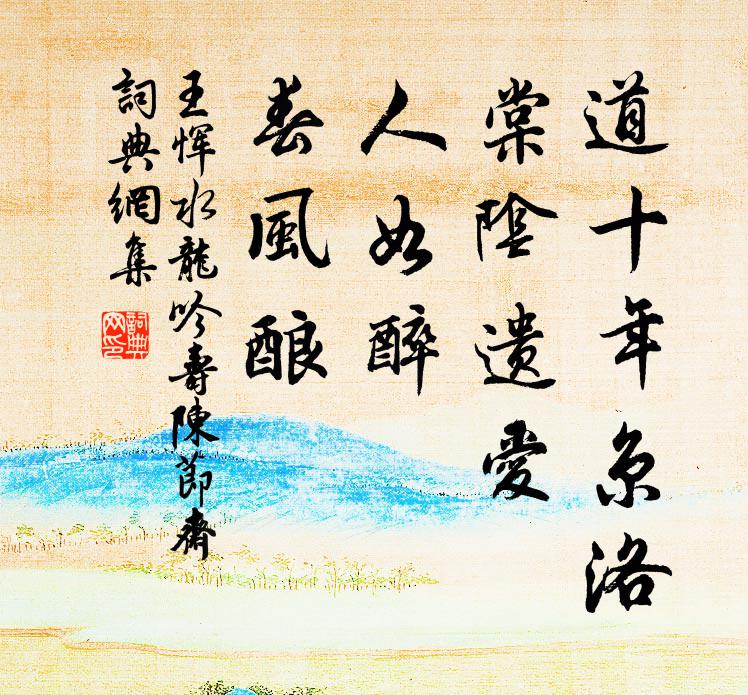 道十年京洛
棠陰遺愛
人如醉
春風酿
王惲水龍吟壽陳節齋
詞典網集
詞典网印